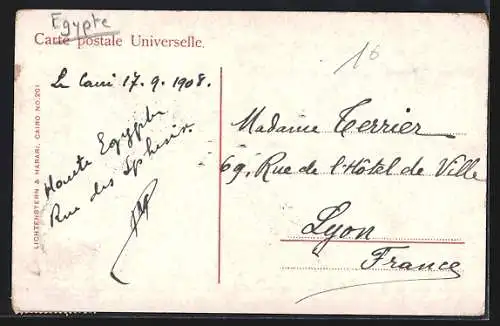 Egypte
Carte postale Universelle.
16
Le Caire 17.9.1908.
Haute Egypte
Rue des Sphinx.
Madame Terrier
69, Rue de l'Hôtel de Ville
Lyon
France
LICHTENSTERN & HARARI, CAIRO NO.201